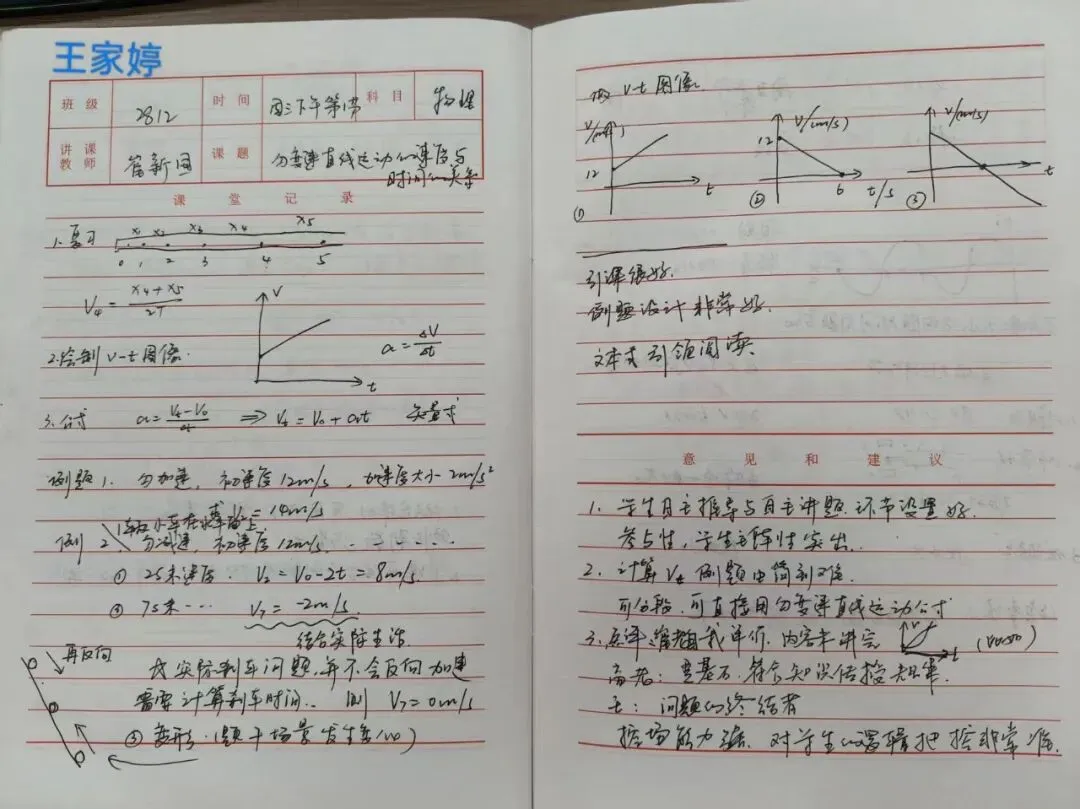 王家婷
班级 2812 时间 周三下午第 节 科目 物理
讲课教师 崔新国 课题 匀变速直线运动的速度与时间的关系
课堂记录
1.复习
x₁ x₂ x₃ x₄ x₅
0 1 2 3 4 5
V₄ = (x₄+x₅)/2T
V
t
2.绘制 v-t图像.
a = ΔV/Δt
3.公式 a = (Vt-V₀)/Δt ⇒ Vt = V₀ + at 矢量式
例题1. 匀加速, 初速度12m/s, 加速度大小2m/s²
= 14m/s
例2. 匀减速, 初速度12m/s. ……
① 2S末速度. V₂ = V₀-2t = 8m/s.
② 7S末… V₇ = -2m/s.
结合实际生活
再反向
实际刹车问题,并不会反向加速
需要计算刹车时间. 则 V₇=0m/s
③ 变形.(题干场景发生变化)
做 v-t图像.
V/(m/s) 12 t ①
V/(m/s) 12 6 t/s ②
V/(m/s) t ③
引课很好.
例题设计非常好.
文本式引领阅读
意见和建议
1. 学生自主推导与自主讲题环节设置好.
参与性,学生主体性突出.
2. 计算Vt 例题由简到难.
可分段,可直接用匀变速直线运动公式
3.点评 自我评价. 内容未讲完
V t
: 奠基石.符合知识传授规律.
王: 问题的终结者
控场能力强. 对学生的逻辑把控非常准.